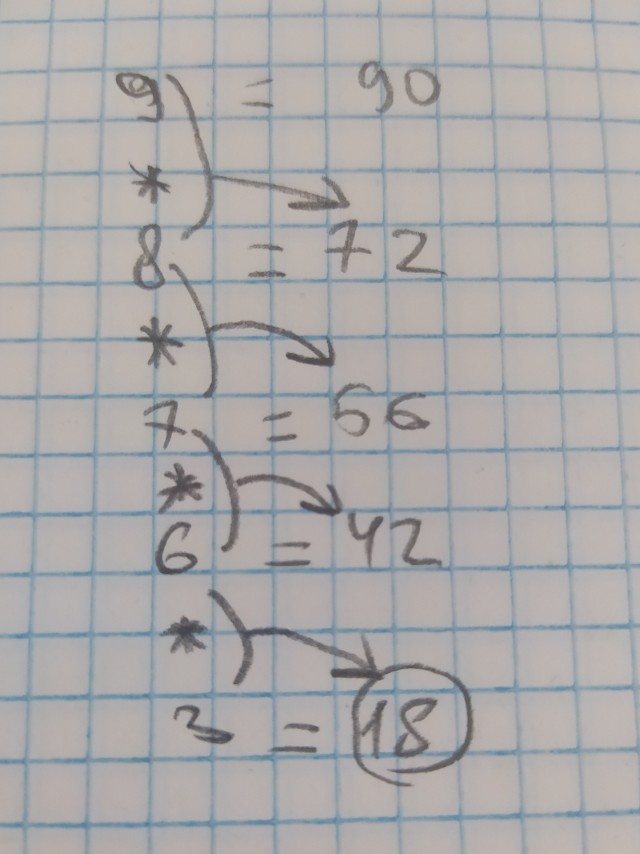 9 = 90
*
8 = 72
*
7 = 56
*
6 = 42
*
3 = 18